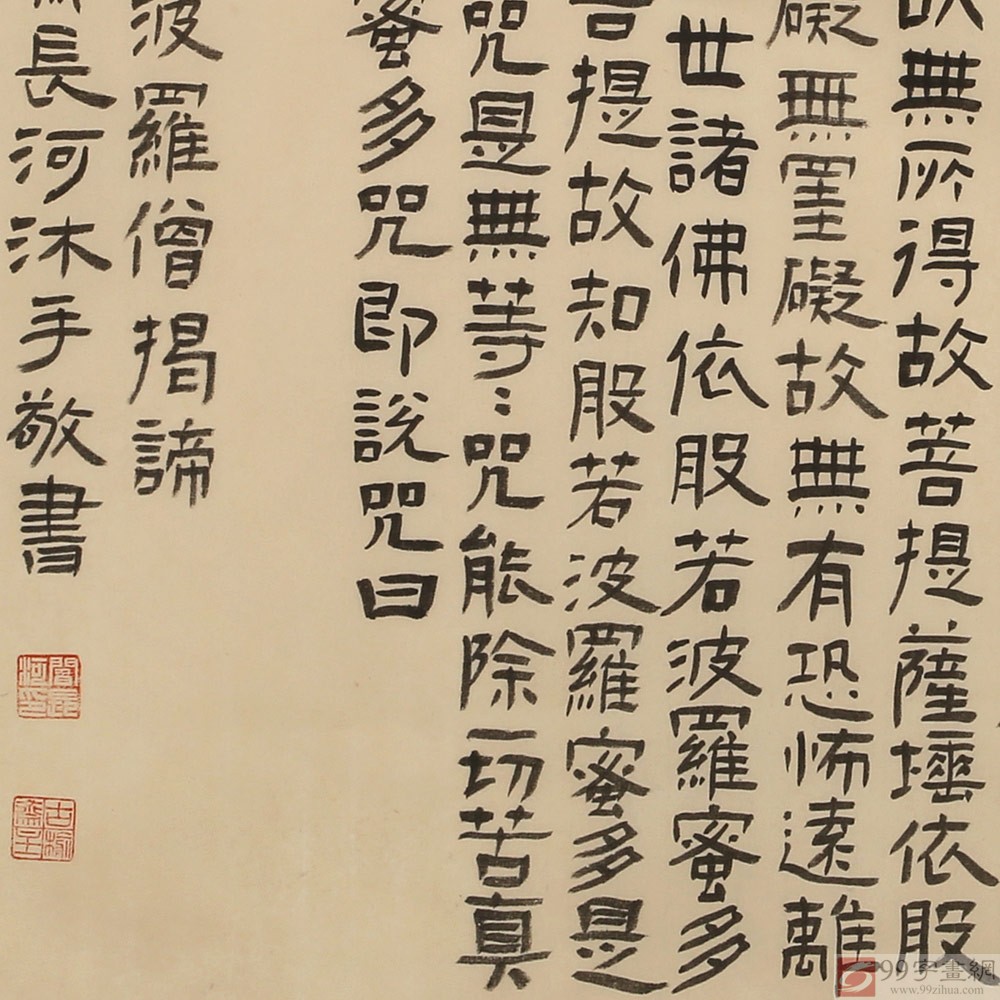 無所得故菩提薩埵依般
礙無罣礙故無有恐怖遠離
世諸佛依般若波羅蜜多
菩提故知般若波羅蜜多是
咒是無等〻咒能除一切苦真
蜜多咒即說咒曰
波羅僧揭諦
長河沐手敬書
99字畫網
www.99zihua.com